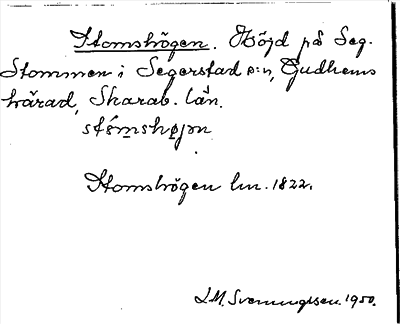 Stomshögen. Höjd på Seg.
Stommen i Segerstad s:n, Gudhems
härad, Skarab. län.
stómshøjən
Stomshögen lm. 1822.
J.M. Svenungsson. 1950.